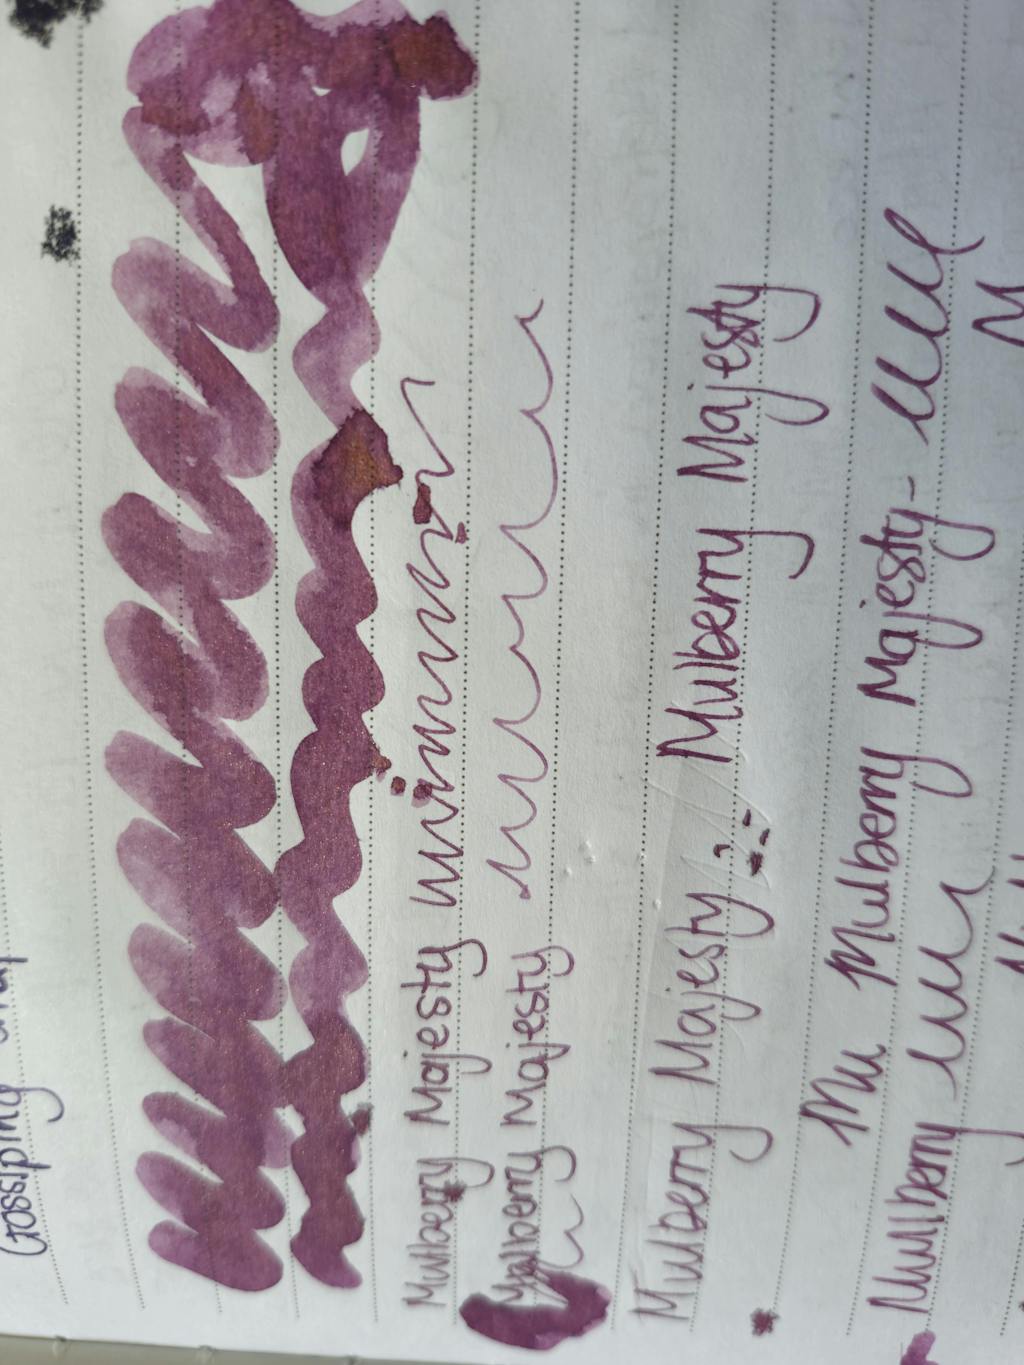 Gossiping
Mulberry Majesty
Mulberry Majesty
Mulberry Majesty Mulberry Majesty
Mu Mulberry Majesty
Mulberry